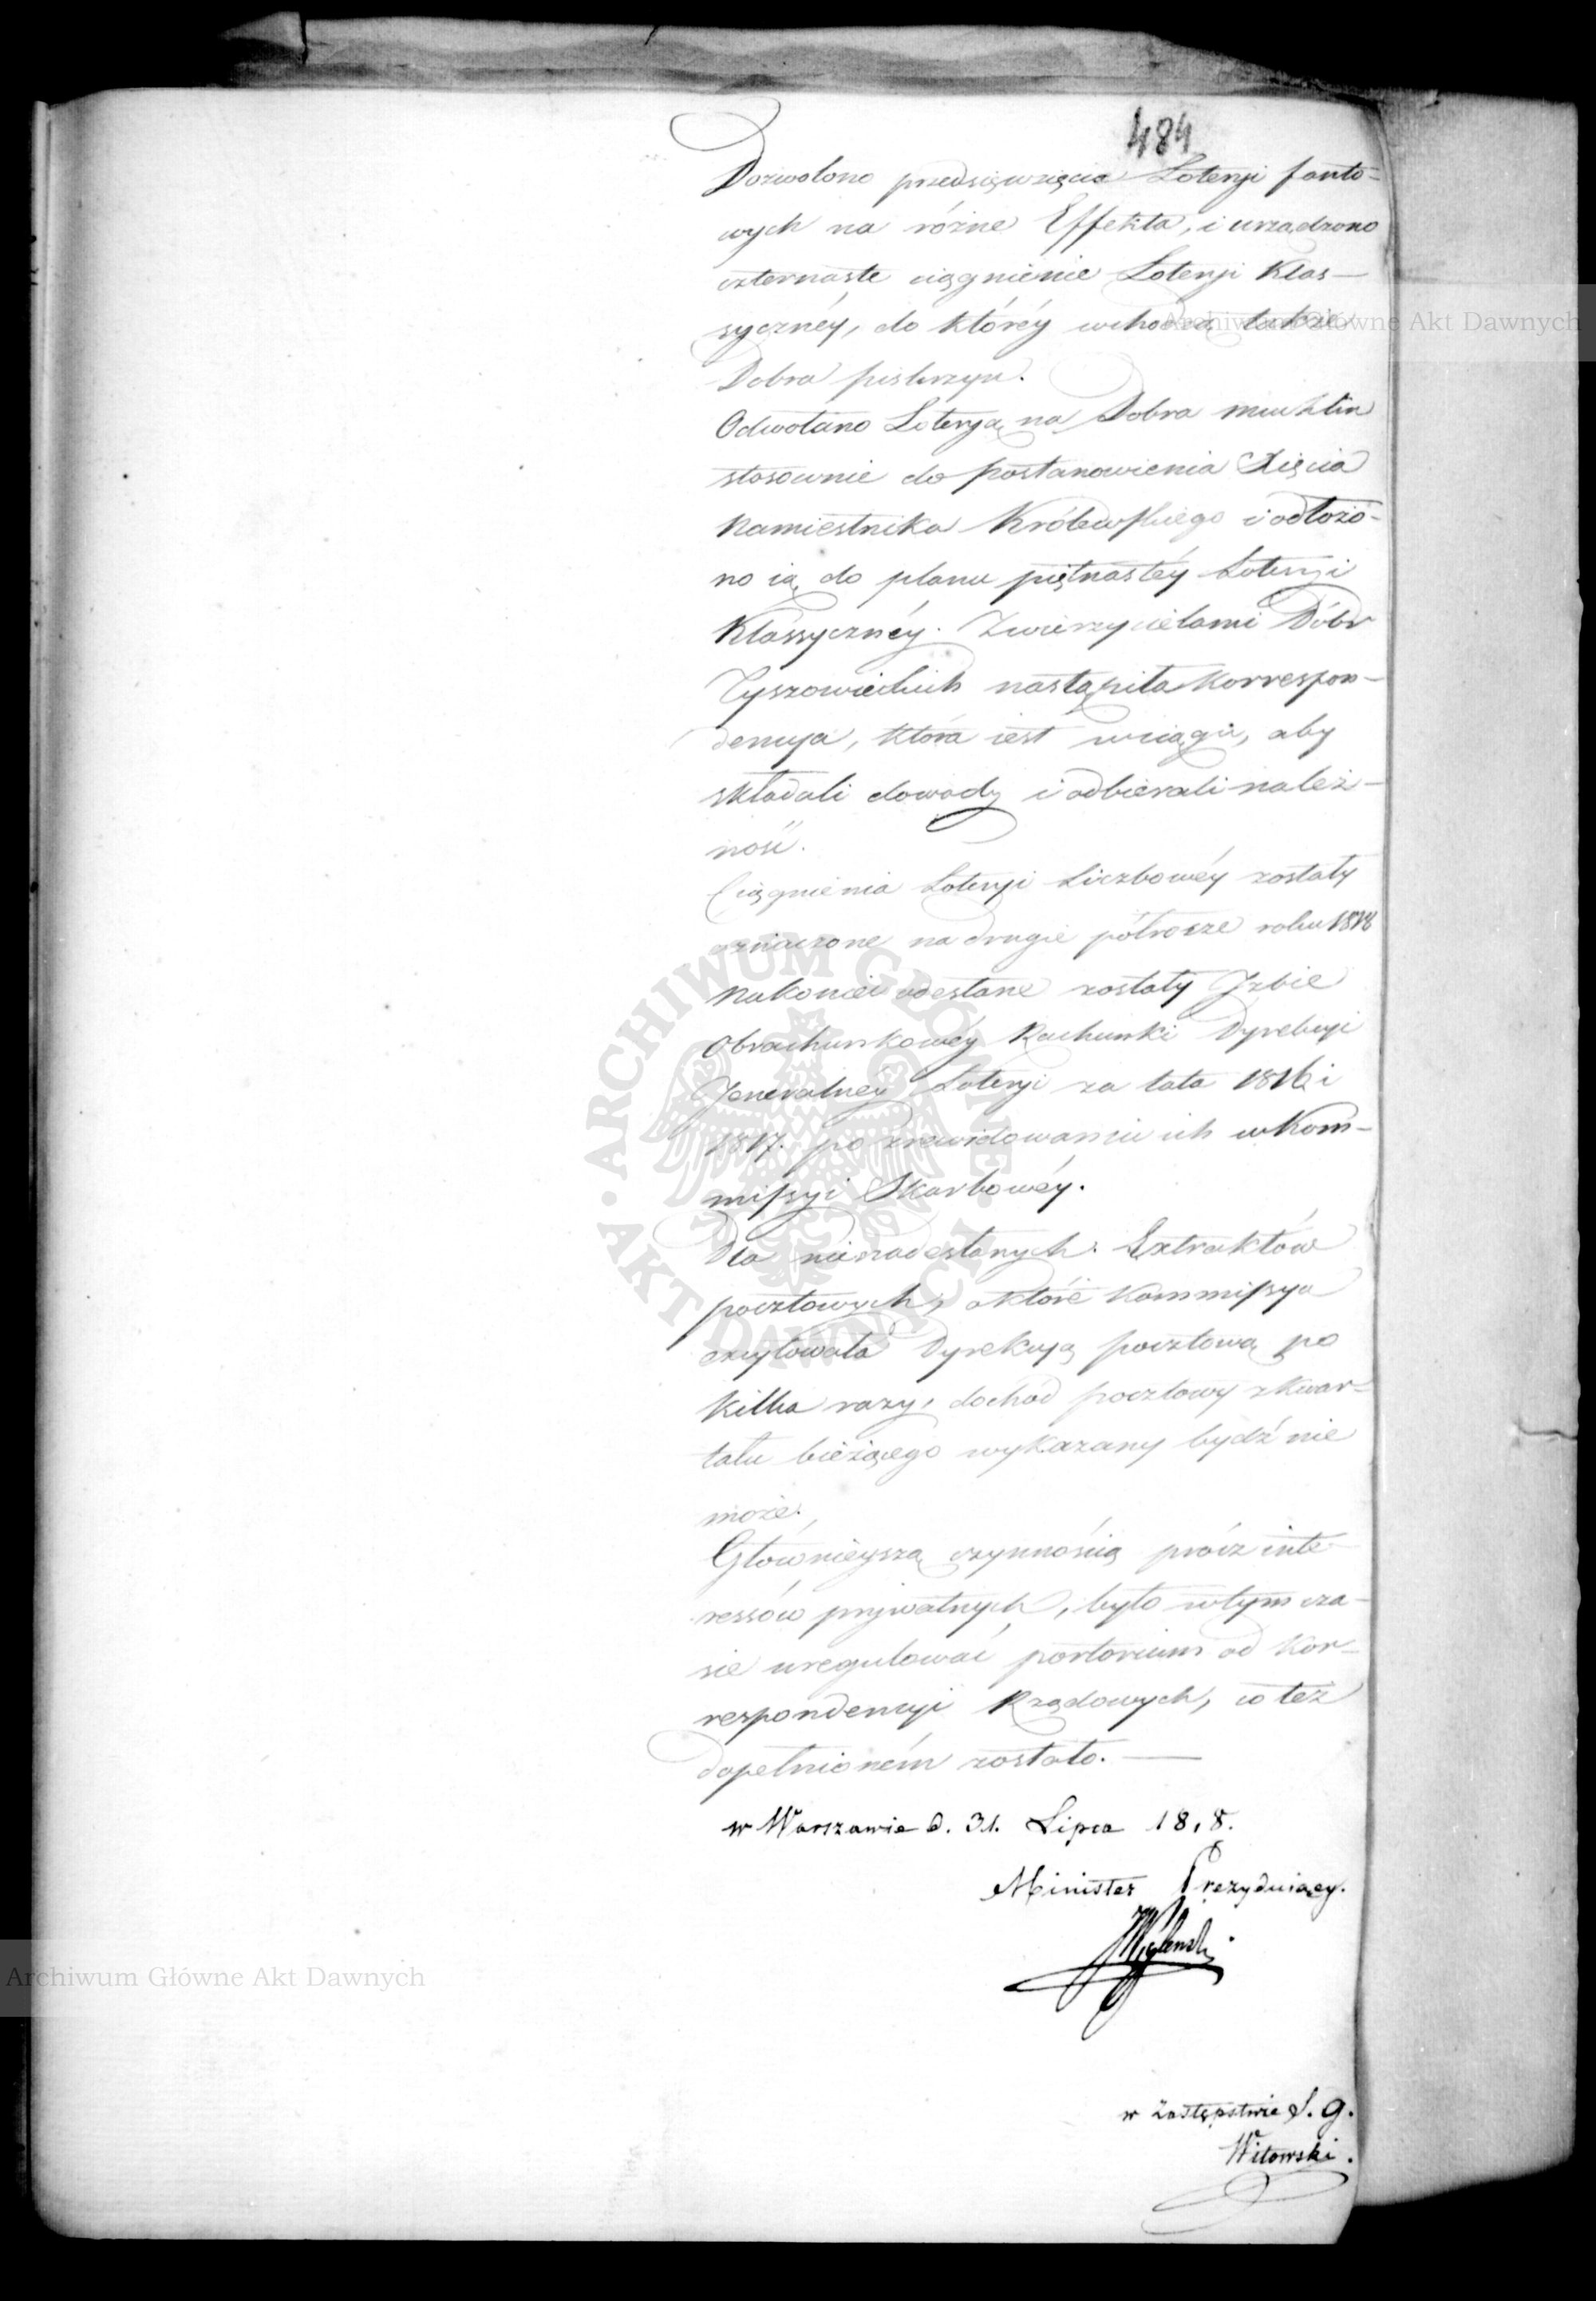 484
Dozwolono przedsięwzięcia Loteryi fanto-
wych na różne Effekta, i urządzono
czternaste ciągnienie Loteryi Klas-
syczney, do któréy wchodzą także
Dobra
Odwołano Loteryą na Dobra
stosownie do postanowienia Xięcia
Namiestnika Królewskiego i odłożo-
no ią do planu piętnastéy Loteryi
Klassycznéy. Zwierzycielami Dóbr
Tyszowieckich nastąpiła korrespon-
dencya, która iest wciągu, aby
składali dowody i odbierali należ-
ność.
Ciągnienia Loteryi Liczbowéy zostały
oznaczone na drugie półrocze roku 1818
Nakoniec odesłane zostały Jzbie
Obrachunkowéy Rachunki Dyrekcyi
Jeneralney Loteryi za lata 1816 i
1817. po zrewidowaniu ich w Kom-
missyi Skarbowéy.
Dla nienadesłanych Extraktów
pocztowych, o które Kommissya
excytowała Dyrekcyą pocztową po
kilka razy, dochód pocztowy z kwar-
tału bieżącego wykazany bydź nie
może.
Głównieyszą czynnością prócz inte-
ressów prywatnych, było w tym cza-
sie uregulować portorium od Kor-
respondencyi Rządowych, co też
dopełnioném zostało.
w Warszawie d. 31. Lipca 1818.
Minister Prezyduiący.
w Zastępstwie S. G.
Witowski.
Archiwum Główne Akt Dawnych
Archiwum Główne Akt Dawnych
ARCHIWUM GŁÓWNE • AKT DAWNYCH •